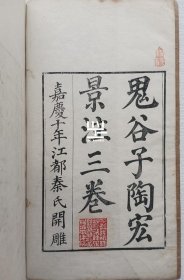 鬼谷子陶宏
景注三卷
嘉慶十年江都秦氏開雕